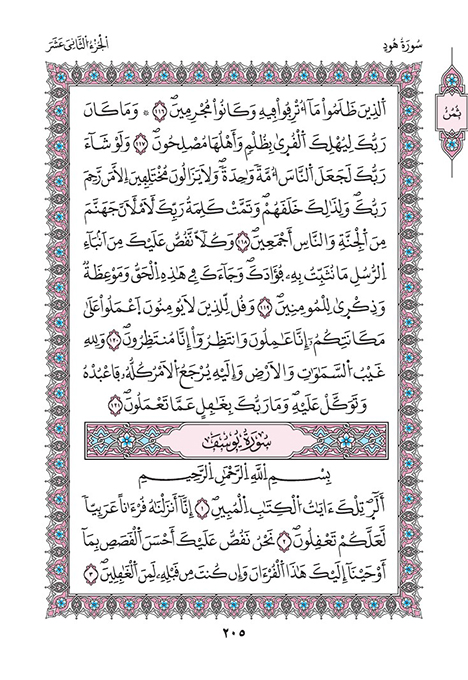 سُورَةُ هُودٍ
اَلْجُزْءُ الثَّانِيَ عَشَرَ
ثُمُنُ
اَلذِينَ ظَلَمُواْ مَآ أُتْرِفُواْ فِيهِ وَكَانُواْ مُجْرِمِينَۖ ١١٦ ۞ وَمَا كَانَ
رَبُّكَ لِيُهْلِكَ اَلْقُرٜىٰ بِظُلْمٖ وَأَهْلُهَا مُصْلِحُونَۖ ١١٧ وَلَوْ شَآءَ
رَبُّكَ لَجَعَلَ اَلنَّاسَ أُمَّةٗ وَٰحِدَةٗۖ وَلَا يَزَالُونَ مُخْتَلِفِينَ إِلَّا مَن رَّحِمَ
رَبُّكَۖ وَلِذَٰلِكَ خَلَقَهُمْۖ وَتَمَّتْ كَلِمَةُ رَبِّكَ لَأَمْلَأَنَّ جَهَنَّمَ
مِنَ اَلْجِنَّةِ وَالنَّاسِ أَجْمَعِينَۖ ١١٨ وَكُلّاٗ نَّقُصُّ عَلَيْكَ مِنَ اَنۢبَآءِ
اِلرُّسُلِ مَا نُثَبِّتُ بِهِۦ فُؤَادَكَۖ وَجَآءَكَ فِي هَٰذِهِ اِلْحَقُّ وَمَوْعِظَةٞ
وَذِكْرٜىٰ لِلْمُومِنِينَۖ ١١٩ وَقُل لِّلذِينَ لَا يُومِنُونَ اَعْمَلُواْ عَلَىٰ
مَكَانَتِكُمُۥٓ إِنَّا عَٰمِلُونَ وَانتَظِرُوٓاْ إِنَّا مُنتَظِرُونَۖ ١٢٠ وَلِلهِ
غَيْبُ اُلسَّمَٰوَٰتِ وَالْأَرْضِ وَإِلَيْهِ يُرْجَعُ اُلْأَمْرُ كُلُّهُۥ فَاعْبُدْهُ
وَتَوَكَّلْ عَلَيْهِۖ وَمَا رَبُّكَ بِغَٰفِلٍ عَمَّا تَعْمَلُونَۖ ١٢١
سُورَةُ يُوسُفَ
بِسْمِ اِللَّهِ اِلرَّحْمَٰنِ اِلرَّحِيمِ
أَلَٓرۖ تِلْكَ ءَايَٰتُ اُلْكِتَٰبِ اِلْمُبِينِۖ ١ إِنَّآ أَنزَلْنَٰهُ قُرْءَٰناً عَرَبِيّاٗ
لَّعَلَّكُمْ تَعْقِلُونَۖ ٢ نَحْنُ نَقُصُّ عَلَيْكَ أَحْسَنَ اَلْقَصَصِ بِمَآ
أَوْحَيْنَآ إِلَيْكَ هَٰذَا اَلْقُرْءَانَ وَإِن كُنتَ مِن قَبْلِهِۦ لَمِنَ اَلْغَٰفِلِينَۖ ٣
٢٠٥